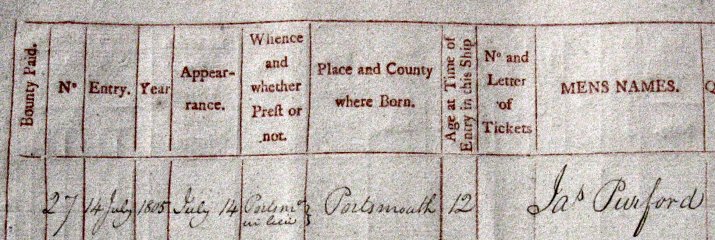 Bounty Paid.
Nº
Entry.
Year
Appear-
rance.
Whence
and
whether
Preſt or
not.
Place and County
where Born.
Age at Time of
Entry in this Ship
Nº and
Letter
of
Tickets
MENS NAMES.
Q
27 14 July 1805 July 14 Portsmº Portsmouth 12 Jaˢ Purford
in lieu